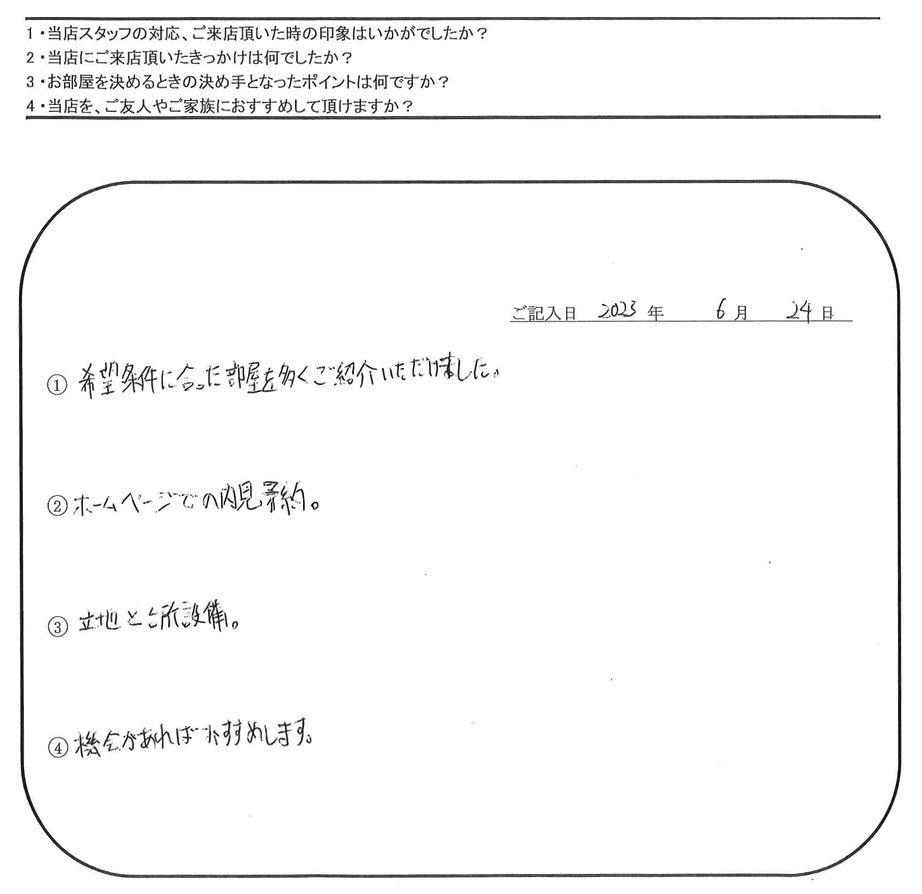 1・当店スタッフの対応、ご来店頂いた時の印象はいかがでしたか？
2・当店にご来店頂いたきっかけは何でしたか？
3・お部屋を決めるときの決め手となったポイントは何ですか？
4・当店を、ご友人やご家族におすすめして頂けますか？
ご記入日 2023 年 6 月 24 日
① 希望条件に合った部屋を多くご紹介いただけました。
② ホームページでの内見予約。
③ 立地と台所設備。
④ 機会があればおすすめします。